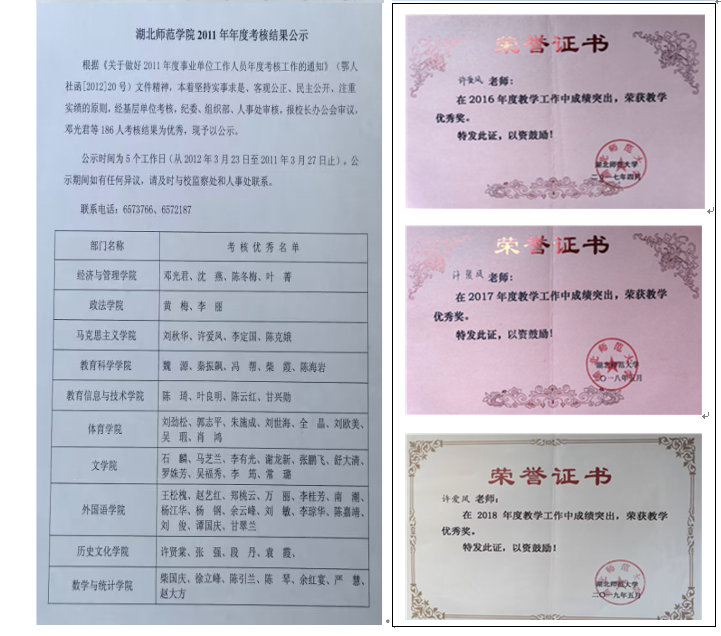 湖北师范学院 2011 年年度考核结果公示
根据《关于做好 2011 年度事业单位工作人员年度考核工作的通知》（鄂人
社函[2012]20 号）文件精神，本着坚持实事求是、客观公正、民主公开、注重
实绩的原则，经基层单位考核，纪委、组织部、人事处审核，报校长办公会审议，
邓光君等 186 人考核结果为优秀，现予以公示。
公示时间为 5 个工作日（从 2012 年 3 月 23 日至 2011 年 3 月 27 日止）。公
示期间如有任何异议，请及时与校监察处和人事处联系。
联系电话：6573766、6572187
部门名称 考 核 优 秀 名 单
经济与管理学院 邓光君、沈 燕、陈冬梅、叶 菁
政法学院 黄 梅、李 丽
马克思主义学院 刘秋华、许爱凤、李定国、陈克娥
教育科学学院 魏 源、秦振飙、冯 帮、柴 霞、陈海岩
教育信息与技术学院 陈 琦、叶良明、陈云红、甘兴勋
体育学院 刘劲松、郭志平、朱施成、刘世海、全 晶、刘欧美、
吴 瑕、肖 鸿
文学院 石 麟、马芝兰、李有光、谢龙新、张鹏飞、舒大清、
罗姝芳、吴福秀、李 筠、常 璐
外国语学院 王松槐、赵艺红、郑桃云、万 丽、李桂芳、南 潮、
杨江华、杨 钢、余云峰、刘 敏、李琼华、陈嘉靖、
刘 俊、谭国庆、甘翠兰
历史文化学院 许贤棠、张 强、段 丹、袁 霞、
数学与统计学院 柴国庆、徐立峰、陈引兰、陈 琴、余红宴、严 慧、
赵大方
荣誉证书
许爱凤 老师：
在 2016 年度教学工作中成绩突出，荣获教学
优秀奖。
特发此证，以资鼓励！
湖北师范大学
二〇一七年四月
荣誉证书
许爱凤 老师：
在 2017 年度教学工作中成绩突出，荣获教学
优秀奖。
特发此证，以资鼓励！
湖北师范大学
二〇一八年五月
荣誉证书
许爱凤 老师：
在 2018 年度教学工作中成绩突出，荣获教学
优秀奖。
特发此证，以资鼓励！
湖北师范大学
二〇一九年五月